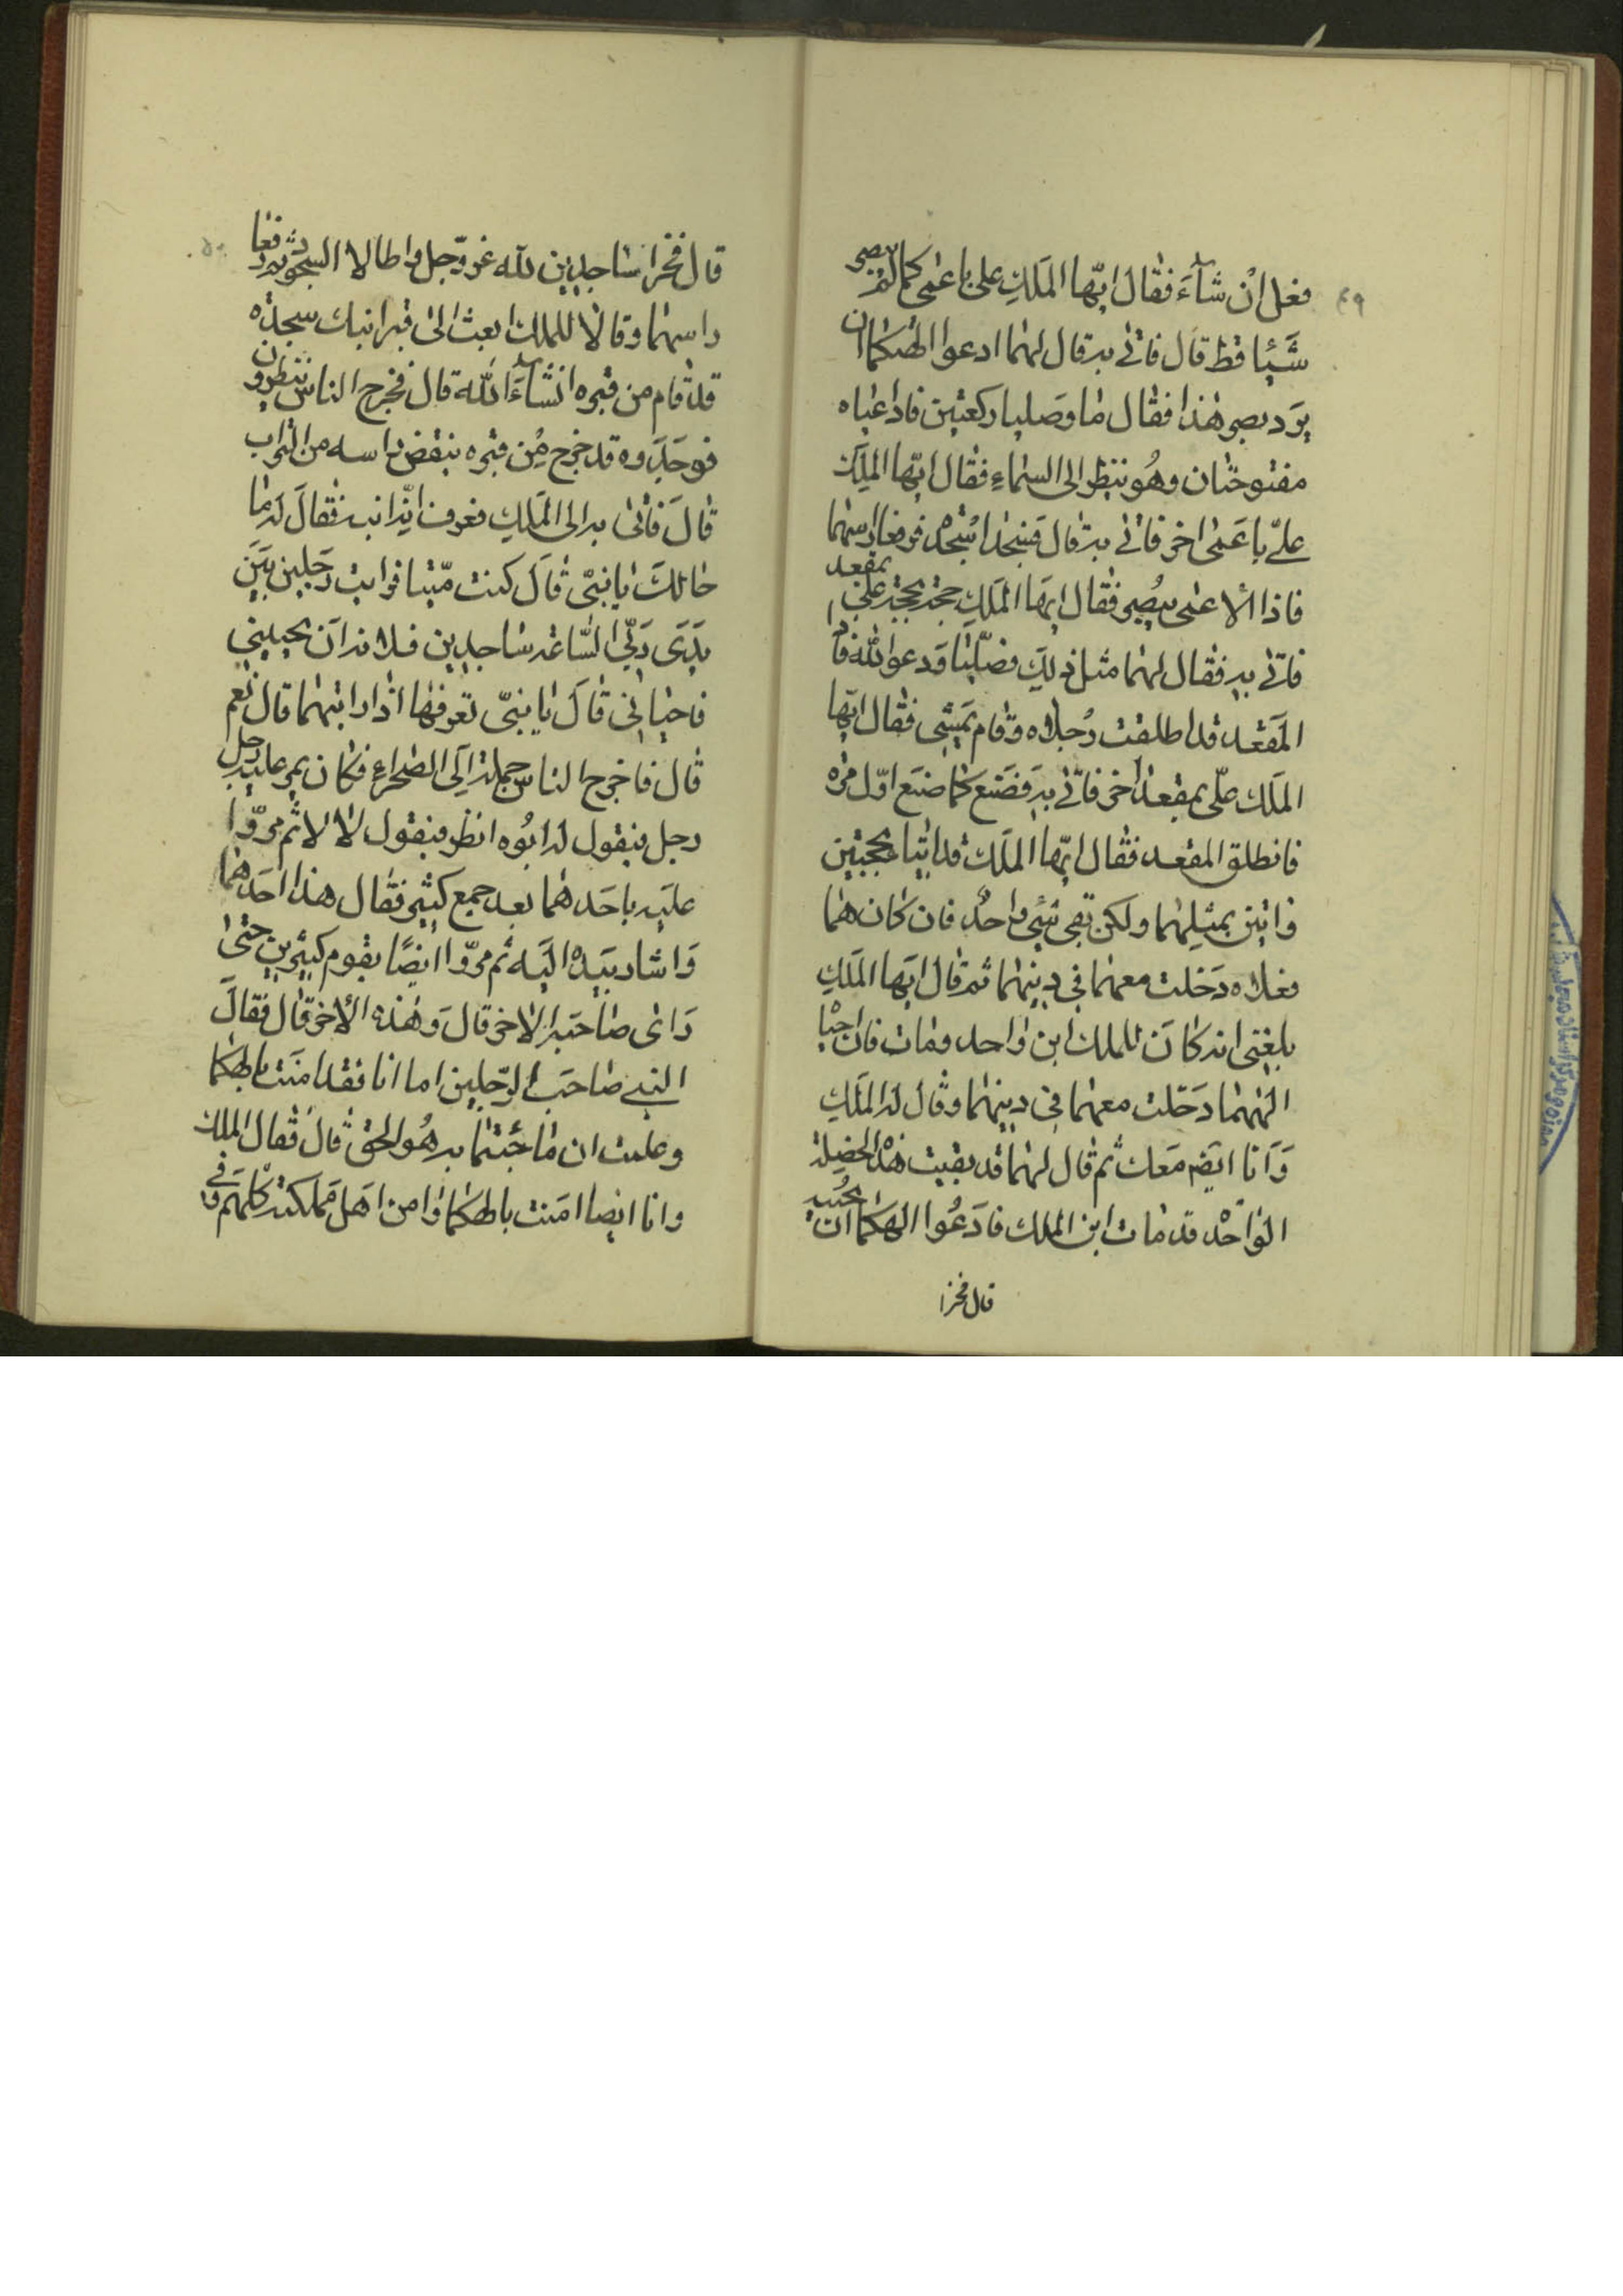 ٤٩
فعل ان شآء فقال ايّها الملك علىّ باعمى كما لم يبصر
شيئا قط قال فاتى به قال لهما ادعوا الهكما ان
يرد بصر هذا فقاما وصليا ركعتين فاذا عيناه
مفتوحتان وهو ينظر الى السماء فقال ايّها الملك
علىّ باعمى اخر فاتى به قال فسجدا سجدة فرفعا راسهما
فاذا الاعمى يبصر فقال ايها الملك حجة بحجة على بمقعد
فاتى به فقال لهما مثل ذلك فصلّيا ودعوا الله فا
المقعد قد اطلقت رجلاه وقام يمشى فقال ايّها
الملك علّى بمقعد اخر فاتى به فصنع كما صنع اوّل مرة
فانطلق المقعد فقال ايّها الملك قد اتيا بحجتين
واتين بمثلهما ولكن بقى شىء واحد فان كان هما
فعلاه دخلت معهما فى دينهما ثم قال ايها الملك
بلغنى انه كان للملك ابن واحد ومات فان احيا
الههما دخلت معهما فى دينهما وقال له الملك
وانا ايضا معك ثم قال لهما قد بقيت هذه الخصلة
الواحدة قد مات ابن الملك فادعوا الهكما ان يحييه
قال فخرا
٥٠
قال فخرا ساجدين لله عزّ وجل واطالا السجود ثم رفعا
راسهما وقالا للملك ابعث الى قبر ابنك سجده
قد قام من قبره انشآء الله قال فخرج الناس ينظرون
فوجدوه قد خرج من قبره ينفض راسه من التراب
قال فاتى به الى الملك فعرف انه ابنه فقال له ما
حالك يا بنىّ قال كنت ميّتا فرايت رجلين بين
يدى ربّي الساعة ساجدين فلانه ان يحييني
فاحيانى قال يا بنىّ تعرفهما اذا رايتهما قال نعم
قال فاخرج الناس جملة الى الصحراء فكان يمر عليه رجل
رجل فيقول له ابوه انظر فيقول لا لا ثم مرّوا
عليه باحدهما بعد جمع كثير فقال هذا احدهما
واشار بيده اليه ثم مرّوا ايضًا بقوم كثيرين حتى
راى صاحبه الاخر قال وهذا الاخر قال فقال
النبى صاحب الرجلين اما انا فقد امنت بالهكما
وعلمت ان ما جئتما به هو الحق قال فقال الملك
وانا ايضا امنت بالهكما وامن اهل مملكته كلهم وفى